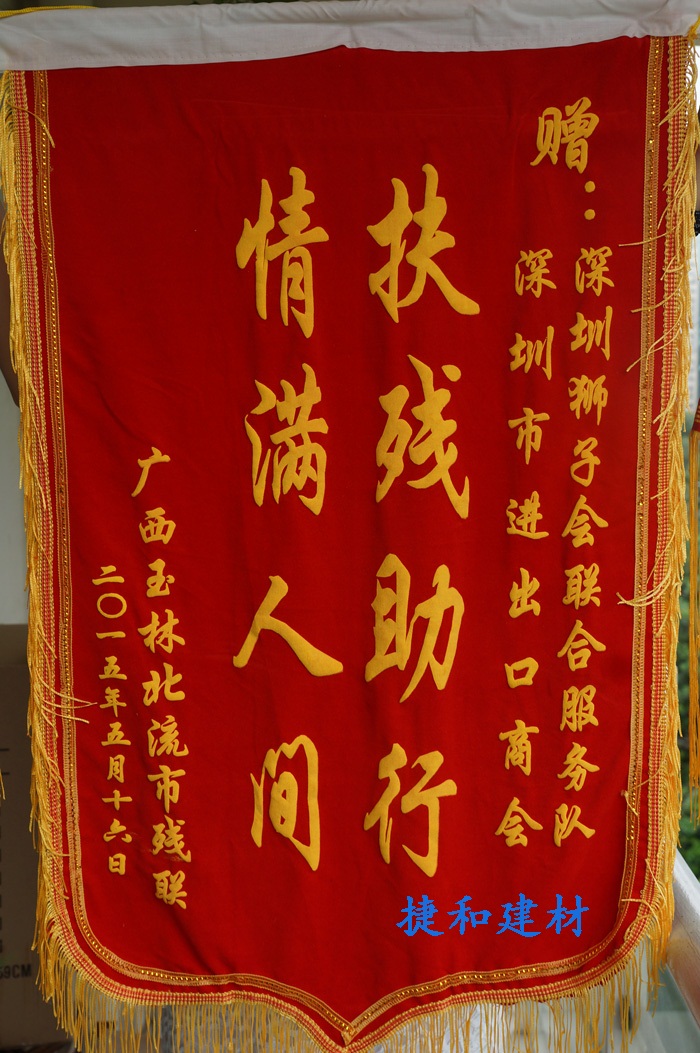 赠：
深圳狮子会联合服务队
深圳市进出口商会
扶残助行
情满人间
广西玉林北流市残联
二〇一五年五月十六日
捷和建材
59CM